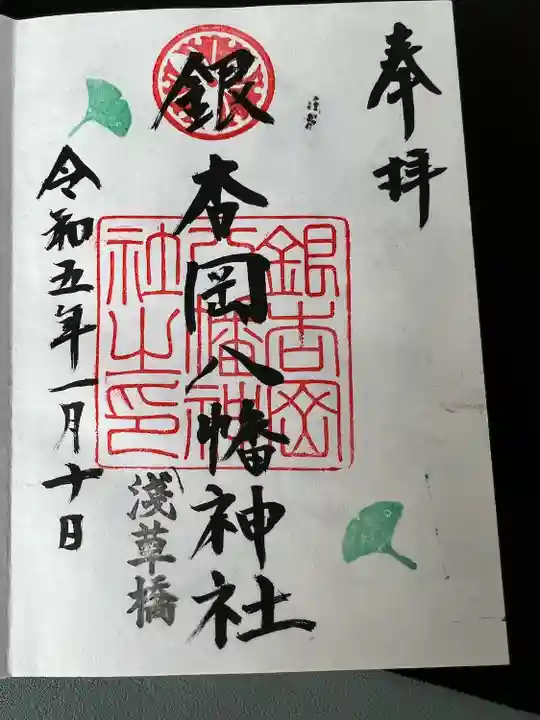 奉拝
銀杏岡八幡神社
銀杏岡八幡神社之印
浅草橋
令和五年一月十日